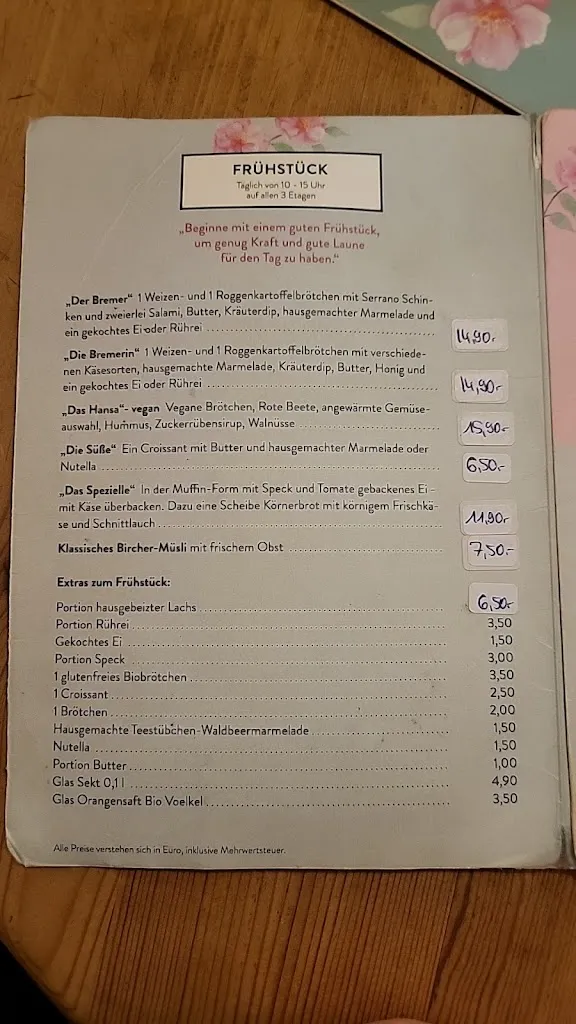 FRÜHSTÜCK
Täglich von 10 - 15 Uhr
auf allen 3 Etagen
„Beginne mit einem guten Frühstück,
um genug Kraft und gute Laune
für den Tag zu haben.“
„Der Bremer“ 1 Weizen- und 1 Roggenkartoffelbrötchen mit Serrano Schin-
ken und zweierlei Salami, Butter, Kräuterdip, hausgemachter Marmelade und
ein gekochtes Ei oder Rührei 14,90.-
„Die Bremerin“ 1 Weizen- und 1 Roggenkartoffelbrötchen mit verschiede-
nen Käsesorten, hausgemachte Marmelade, Kräuterdip, Butter, Honig und
ein gekochtes Ei oder Rührei 14,90.-
„Das Hansa“- vegan Vegane Brötchen, Rote Beete, angewärmte Gemüse-
auswahl, Hummus, Zuckerrübensirup, Walnüsse 15,90.-
„Die Süße“ Ein Croissant mit Butter und hausgemachter Marmelade oder
Nutella 6,50.-
„Das Spezielle“ In der Muffin-Form mit Speck und Tomate gebackenes Ei -
mit Käse überbacken. Dazu eine Scheibe Körnerbrot mit körnigem Frischkä-
se und Schnittlauch 11,90.-
Klassisches Bircher-Müsli mit frischem Obst 7,50.-
Extras zum Frühstück:
Portion hausgebeizter Lachs 6,50.-
Portion Rührei 3,50
Gekochtes Ei 1,50
Portion Speck 3,00
1 glutenfreies Biobrötchen 3,50
1 Croissant 2,50
1 Brötchen 2,00
Hausgemachte Teestübchen-Waldbeermarmelade 1,50
Nutella 1,50
Portion Butter 1,00
Glas Sekt 0,1 l 4,90
Glas Orangensaft Bio Voelkel 3,50
Alle Preise verstehen sich in Euro, inklusive Mehrwertsteuer.